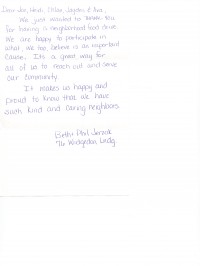 Dear Joe, Heidi, Chloe, Jayden, & Ava,
We just wanted to thank you
for having a neighborhood food drive.
We are happy to participate in
what we, too, believe is an important
cause. It's a great way for
all of us to reach out and serve
our community.
It makes us happy and
proud to know that we have
such kind and caring neighbors.
Beth & Phil
The Widgeton Lady